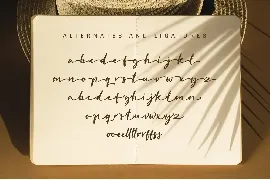 ALTERNATES AND LIGATURES
a b c d e f g h i j k l
m n o p q r s t u v w x y z
a b c d e f g h i j k l m n
o p q r s t u v w x y z